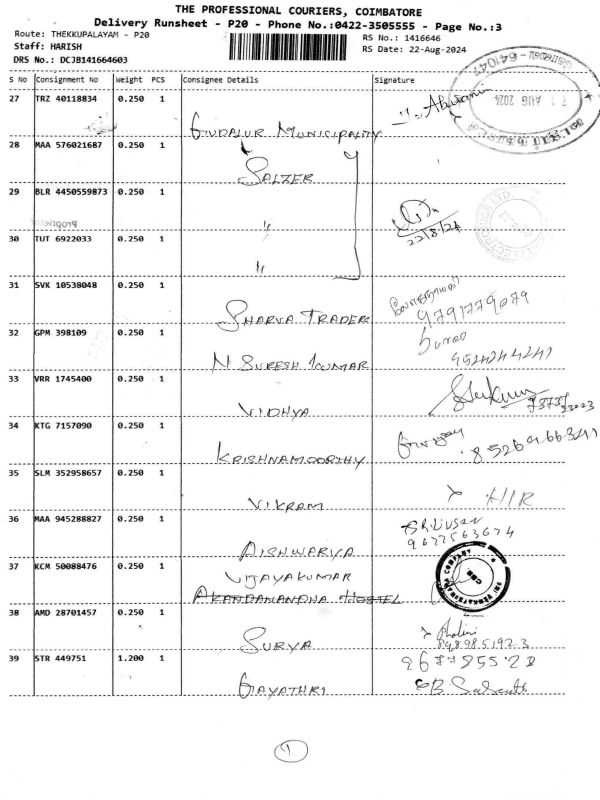 THE PROFESSIONAL COURIERS, COIMBATORE
Delivery Runsheet - P20 - Phone No.:0422-3505555 - Page No.:3
Route: THEKKUPALAYAM - P20
RS No.: 1416646
Staff: HARISH
RS Date: 22-Aug-2024
DRS No.: DCJB141664603
S No Consignment No Weight PCS Consignee Details Signature
27 TRZ 40118834 0.250 1
GUDALUR MUNICIPALITY
28 MAA 576021687 0.250 1
SALZER
29 BLR 4450559873 0.250 1
"
22/8/24
30 TUT 6922033 0.250 1
"
31 SVK 10538048 0.250 1
SHARVA TRADER
9791779079
32 GPM 398109 0.250 1
N SURESH KUMAR
9524244241
33 VRR 1745400 0.250 1
VIDHYA
34 KTG 7157090 0.250 1
KRISHNAMOORTHY
8526966341
35 SLM 352958657 0.250 1
VIKRAM
HIR
36 MAA 945288827 0.250 1
AISHWARYA
9677563674
37 KCM 50088476 0.250 1
VIJAYAKUMAR
AKANDANANDHA HOSTEL
38 AMD 28701457 0.250 1
SURYA
39 STR 449751 1.200 1
GAYATHRI
1